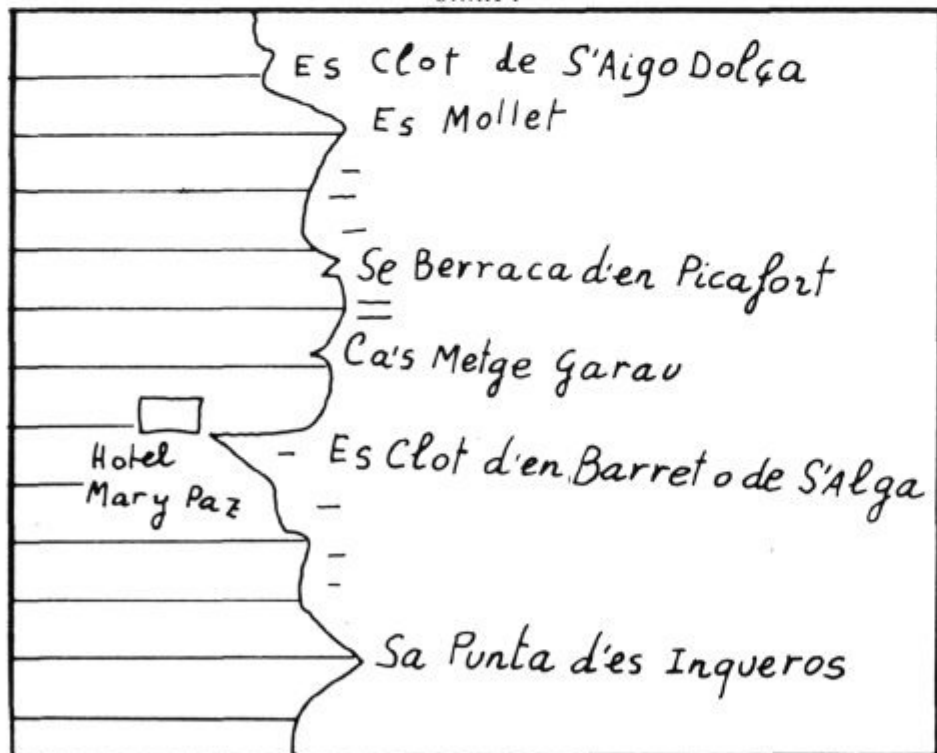 Es Clot de S'Aigo Dolça
Es Mollet
Se Berraca d'en Picafort
Ca's Metge Garau
Hotel
Mary Paz
Es Clot d'en Barret o de S'Alga
Sa Punta d'es Inqueros